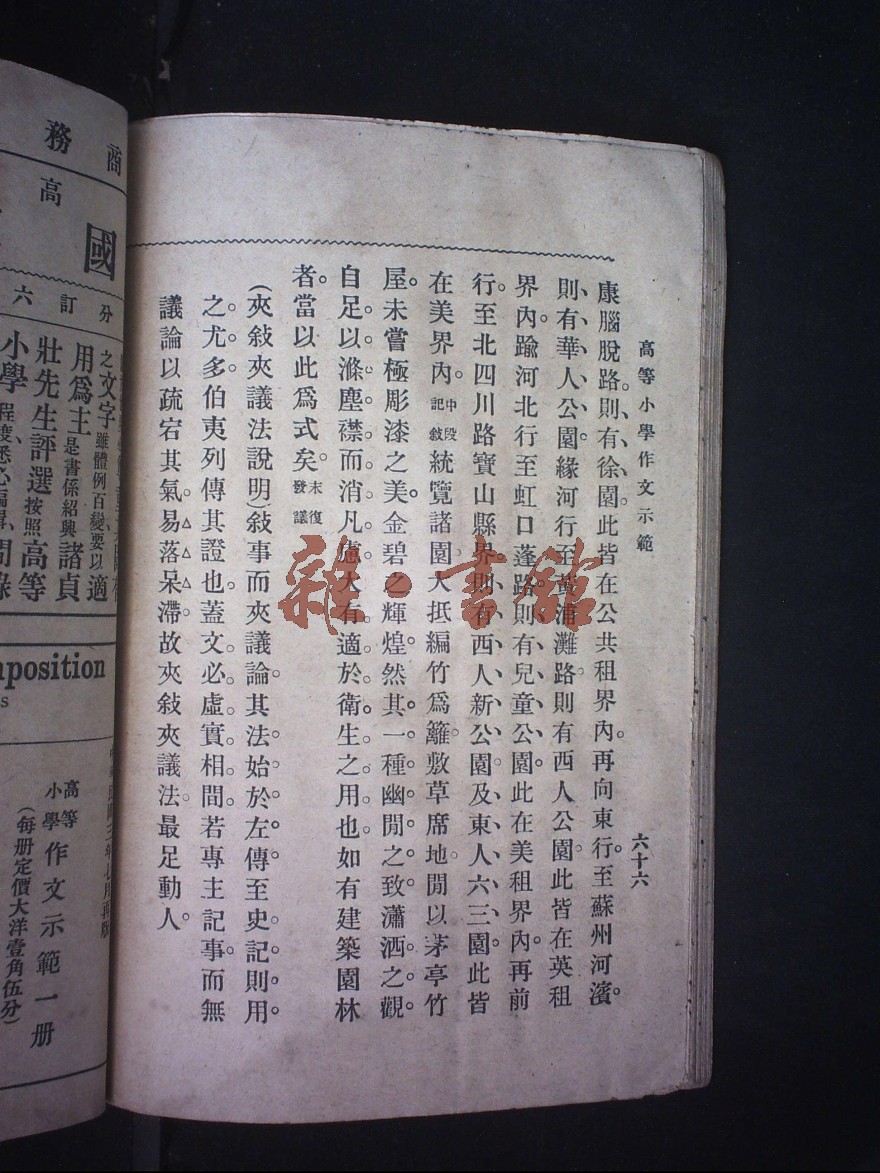 高等小學作文示範
六十六
康腦脫路。則有徐園。此皆在公共租界內。再向東行。至蘇州河濱。
則有華人公園。緣河行至黃浦灘路。則有西人公園。此皆在英租
界內。踰河北行。至虹口蓬路。則有兒童公園。此在美租界內。再前
行。至北四川路寶山縣界。則有西人新公園。及東人六三園。此皆
在美界內。中段記敍統覽諸園。大抵編竹爲籬。敷草席地。閒以茅亭竹
屋。未嘗極彫漆之美。金碧之輝煌。然其一種幽閒之致。瀟洒之觀。
自足以滌塵襟而消凡慮。大有適於衛生之用也。如有建築園林
者。當以此爲式矣。末復發議
(夾敍夾議法說明)敍事而夾議論。其法始於左傳。至史記則用
之尤多。伯夷列傳其證也。蓋文必虛實相間。若專主記事。而無
議論以疏宕其氣。易落呆滯。故夾敍夾議法最足動人。
雜·書館
商務
高
國
分訂六
之文字雖體例百變要以適
用爲主是書係紹興諸貞
壯先生評選按照高等
小學程度
position
高等小學作文示範一册
(每册定價大洋壹角伍分)